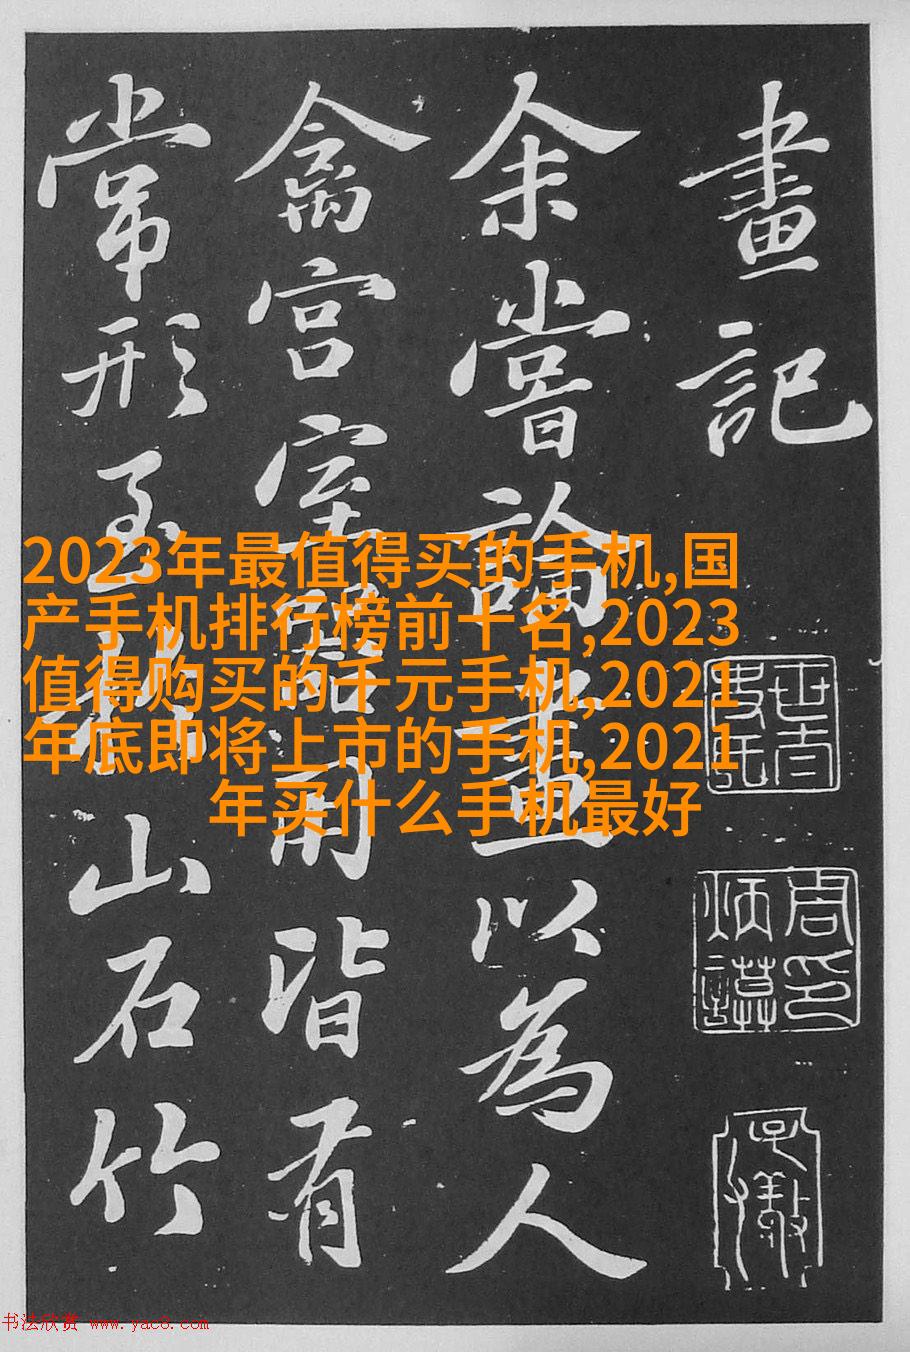 畫記
余嘗論畫以為人
禽宮室器用皆有
常形至於山石竹
2023年最值得买的手机,国
产手机排行榜前十名,2023
值得购买的千元手机,2021
年底即将上市的手机,2021
年买什么手机最好
周印
炳謨
书法欣赏 www.yac8.com